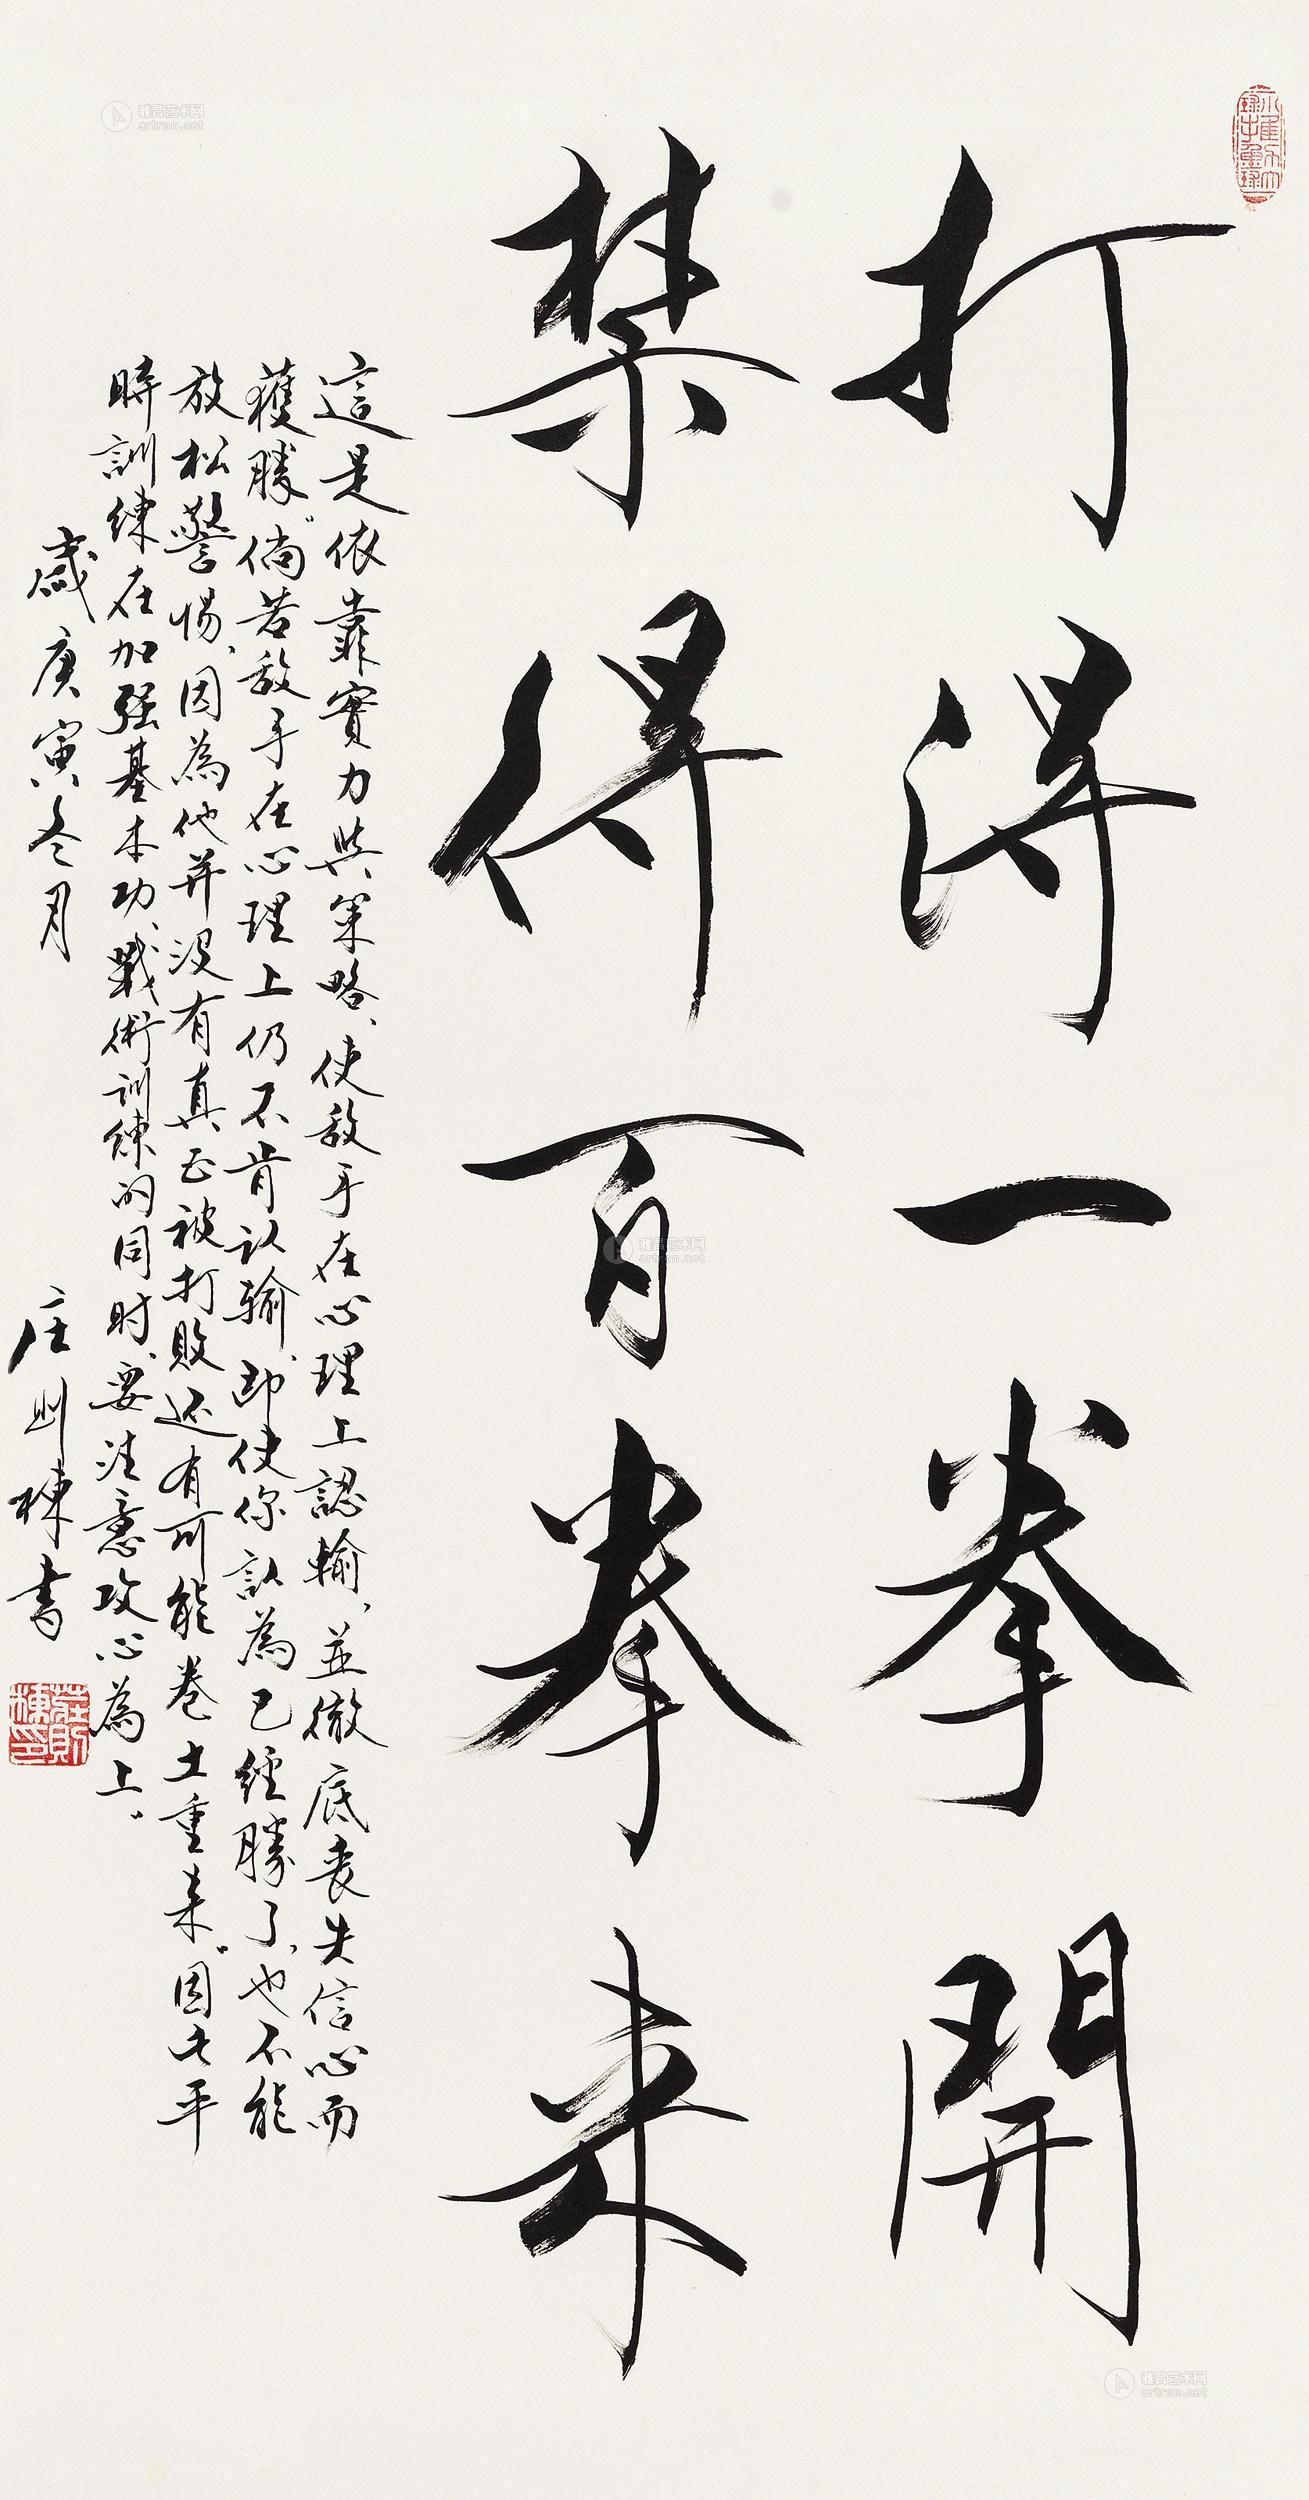 打得一拳開
禁得百拳来
這是依靠實力與策略、使敌手在心理上認輸、並徹底丧失信心而
獲勝。倘若敌手在心理上仍不肯认输、即使你認為已經勝了、也不能
放松警惕、因為他并没有真正被打败还有可能卷土重来。因此平
時訓練在加强基本功、戰術训練的同时、要注意攻心為上。
歲庚寅冬月
庄则栋书
莊則棟印
雅昌艺术网
artron.net
雅昌艺术网
artron.net
雅昌艺术网
artron.net